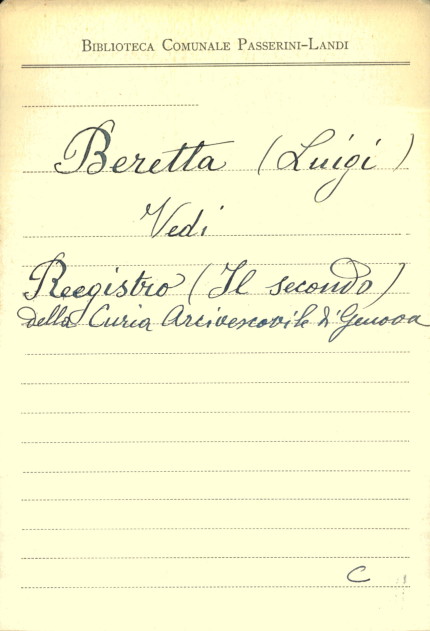 BIBLIOTECA COMUNALE PASSERINI-LANDI
Beretta (Luigi)
Vedi
Reegistro (Il secondo)
della Curia Arcivescovile di Genova
C